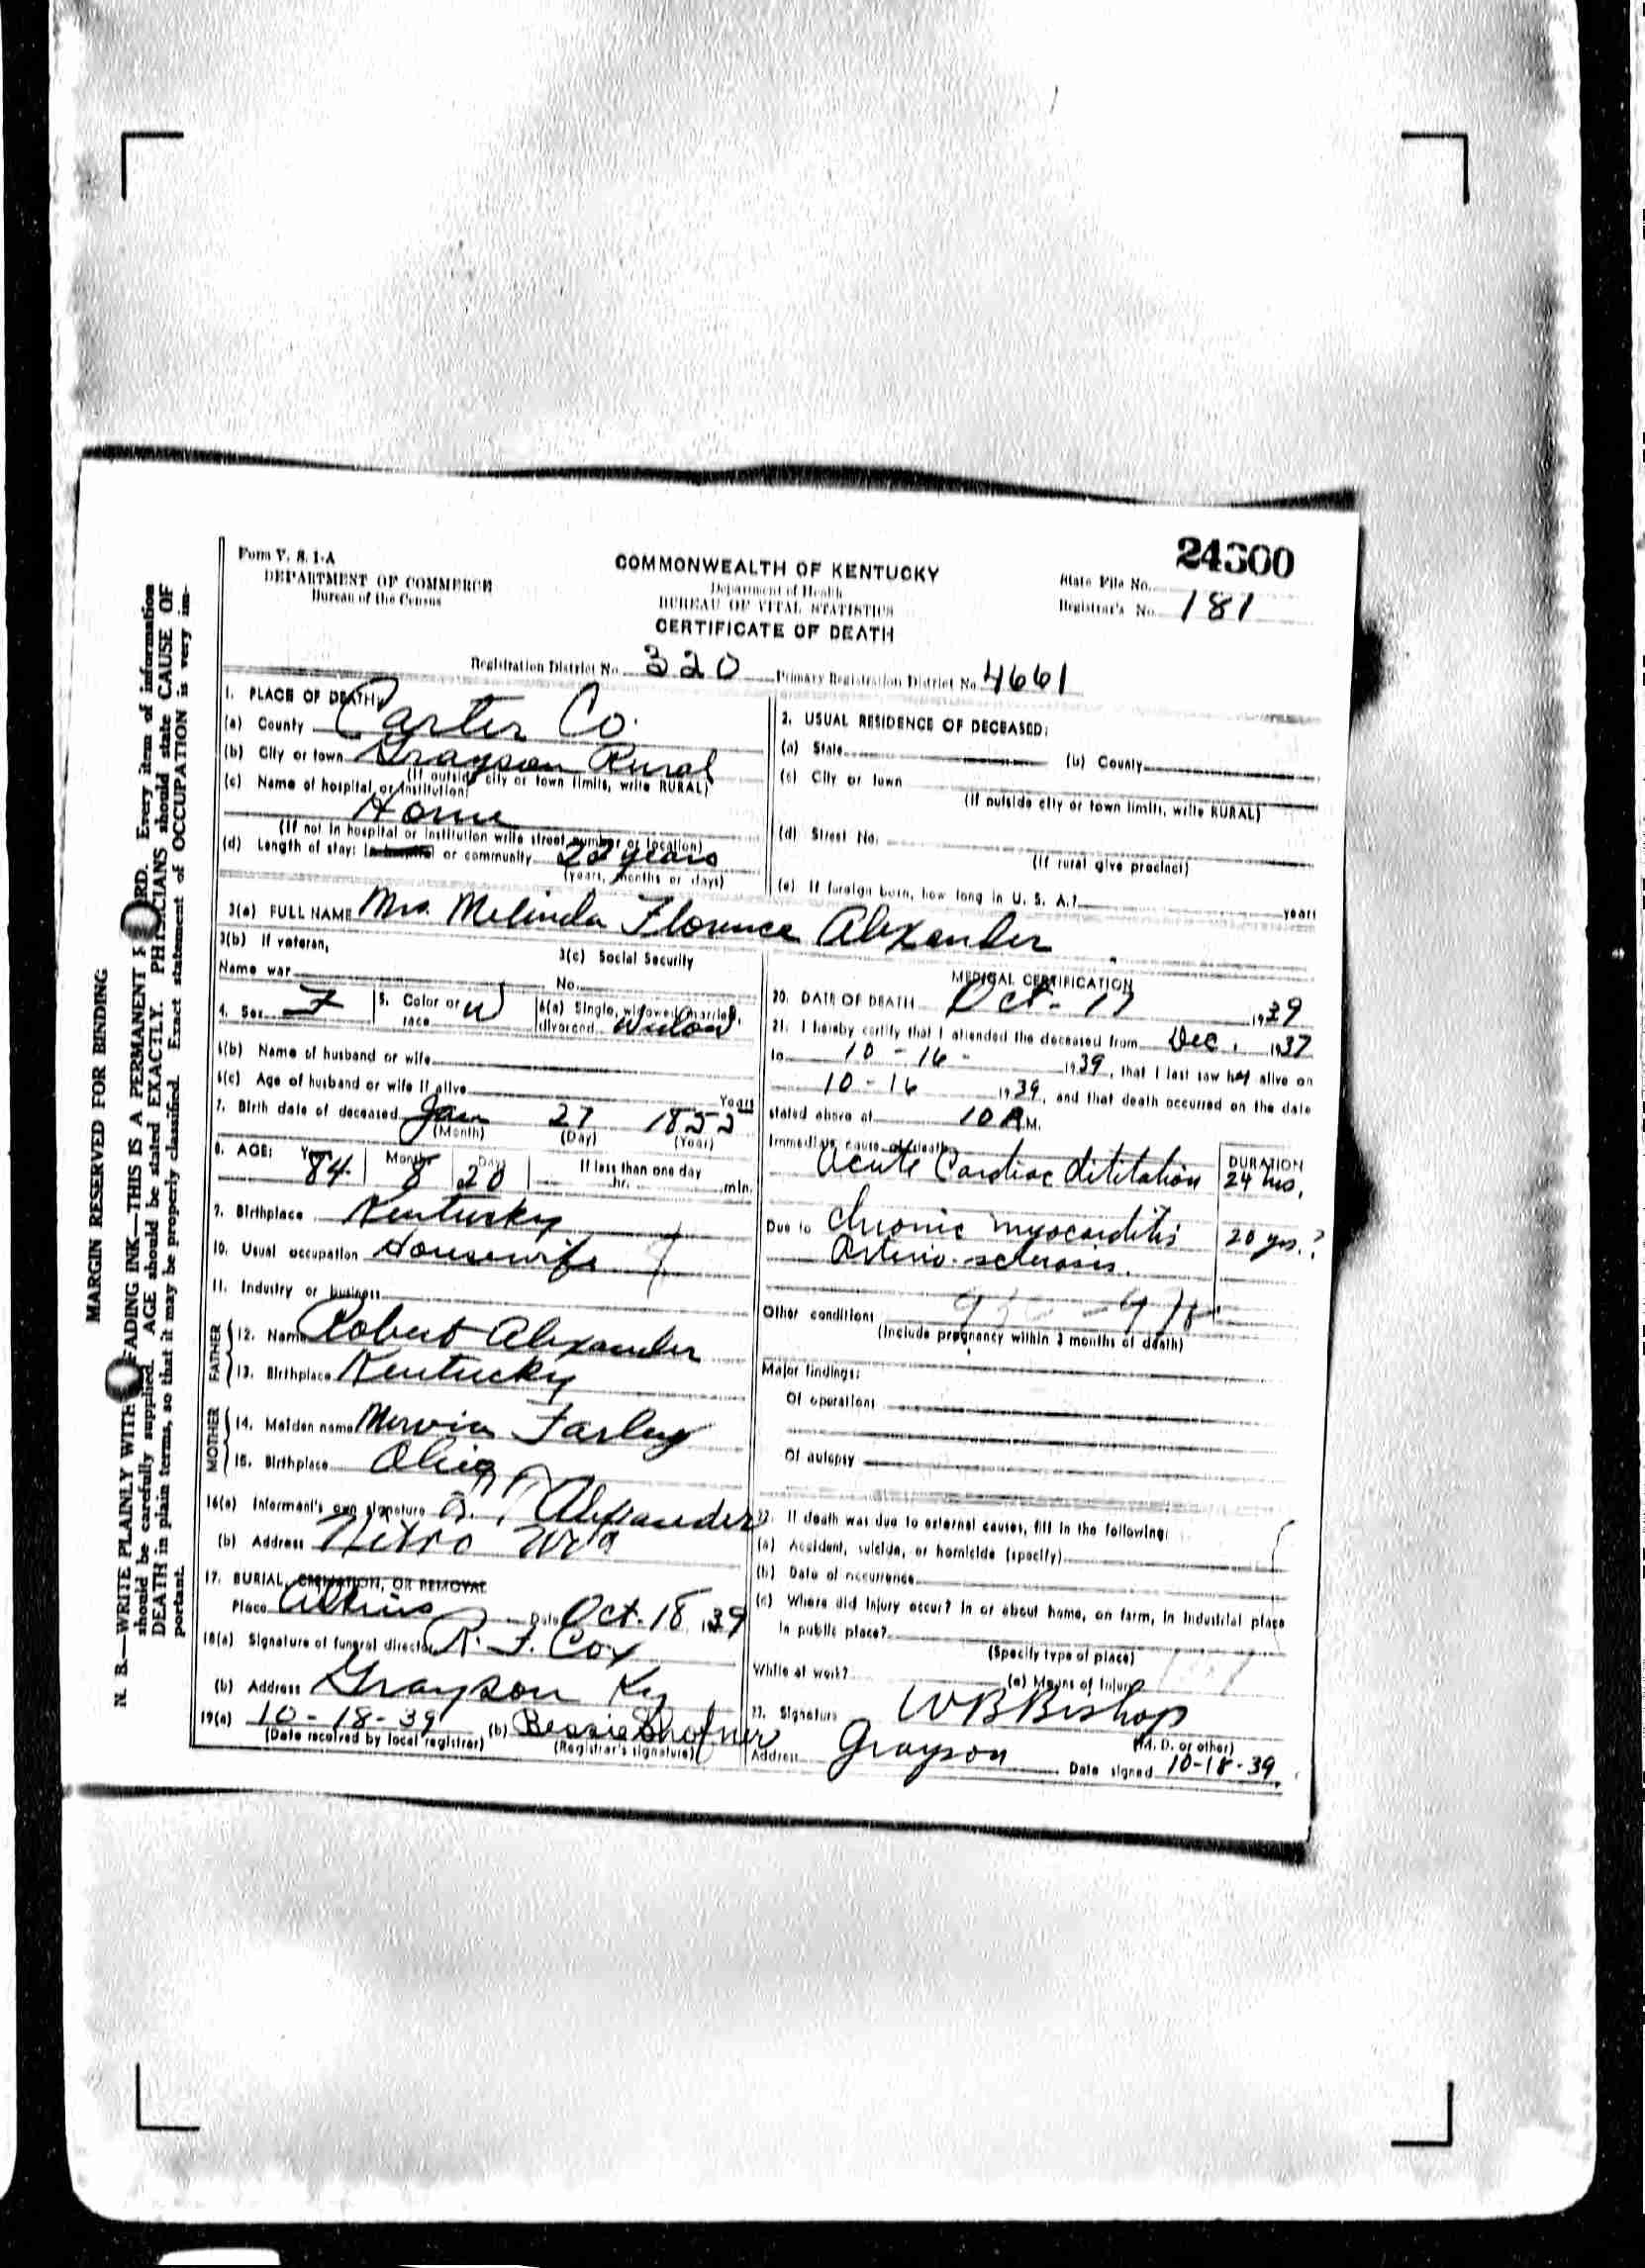 MARGIN RESERVED FOR BINDING
N. B.—WRITE PLAINLY WITH FADING INK—THIS IS A PERMANENT RD. Every item of information
should be carefully supplied. AGE should be stated EXACTLY. PHYSICIANS should state CAUSE OF
DEATH in plain terms, so that it may be properly classified. Exact statement of OCCUPATION is very im-
portant.
Form V. S. 1-A
DEPARTMENT OF COMMERCE
Bureau of the Census
COMMONWEALTH OF KENTUCKY
Department of Health
BUREAU OF VITAL STATISTICS
CERTIFICATE OF DEATH
24300
State File No.
Registrar's No. 181
Registration District No. 320 Primary Registration District No. 4661
1. PLACE OF DEATH:
(a) County Carter Co.
(b) City or town Grayson Rural
(If outside city or town limits, write RURAL)
(c) Name of hospital or institution:
Home
(If not in hospital or institution write street number or location)
(d) Length of stay: In hospital or community 22 years
(years, months or days)
2. USUAL RESIDENCE OF DECEASED:
(a) State (b) County
(c) City or town
(If outside city or town limits, write RURAL)
(d) Street No.
(If rural give precinct)
(e) If foreign born, how long in U. S. A.? years
3(a) FULL NAME Mrs. Melinda Florence Alexander
3(b) If veteran,
Name war
3(c) Social Security
No.
4. Sex F 5. Color or race W 6(a) Single, widowed, married, divorced Widow
6(b) Name of husband or wife
6(c) Age of husband or wife if alive Years
7. Birth date of deceased Jan 27 1855
(Month) (Day) (Year)
8. AGE: Years 84 Months 8 Days 20 If less than one day
hr. min.
9. Birthplace Kentucky
10. Usual occupation Housewife
11. Industry or business
FATHER
12. Name Robert Alexander
13. Birthplace Kentucky
MOTHER
14. Maiden name Farley
15. Birthplace Ohio
16(a) Informant's own signature Alexander
(b) Address Nitro W Va
17. BURIAL, CREMATION, OR REMOVAL
Place Atkins Date Oct. 18 1939
18(a) Signature of funeral director R. F. Cox
(b) Address Grayson Ky
19(a) 10-18-39 (b) Bessie
(Date received by local registrar) (Registrar's signature)
MEDICAL CERTIFICATION
20. DATE OF DEATH Oct-17 1939
21. I hereby certify that I attended the deceased from Dec. 1937
to 10-16- 1939, that I last saw her alive on
10-16 1939, and that death occurred on the date
stated above at 10 A M.
Immediate cause of death DURATION
Acute Cardiac dilitation 24 hrs.
Due to Chronic myocarditis 20 yrs.?
Arterio-sclerosis.
Other conditions
(Include pregnancy within 3 months of death)
Major findings:
Of operations
Of autopsy
22. If death was due to external causes, fill in the following:
(a) Accident, suicide, or homicide (specify)
(b) Date of occurrence
(c) Where did injury occur? In or about home, on farm, in industrial place
in public place?
(Specify type of place)
While at work? (e) Means of Injury
23. Signature W B Bishop
(M. D. or other)
Address Grayson Date signed 10-18-39